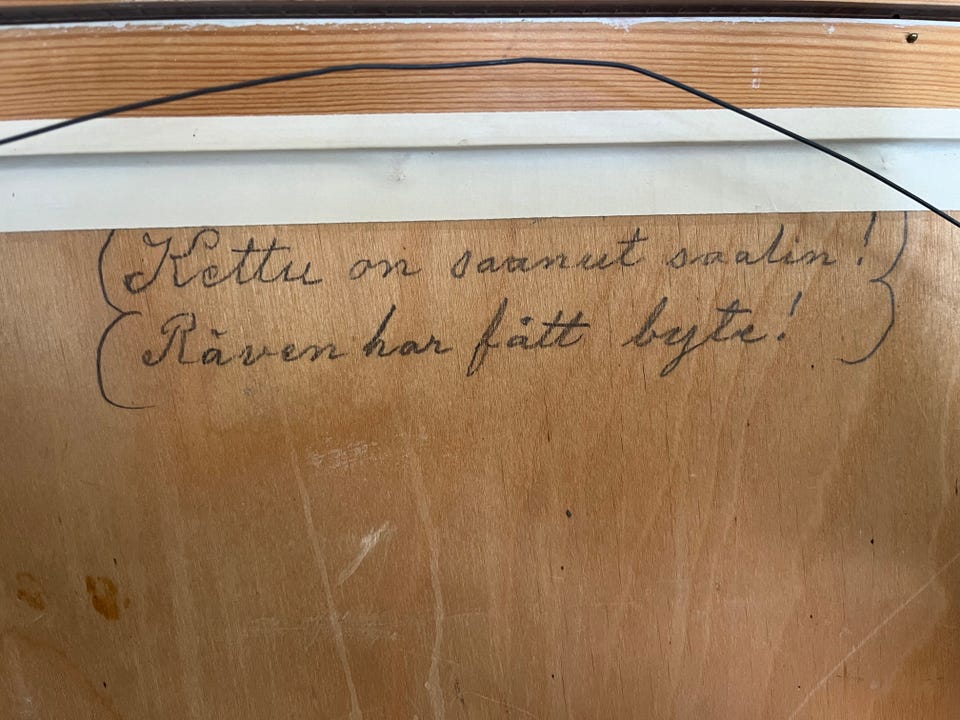 (Kettu on saanut saalin!)
(Räven har fått byte!)